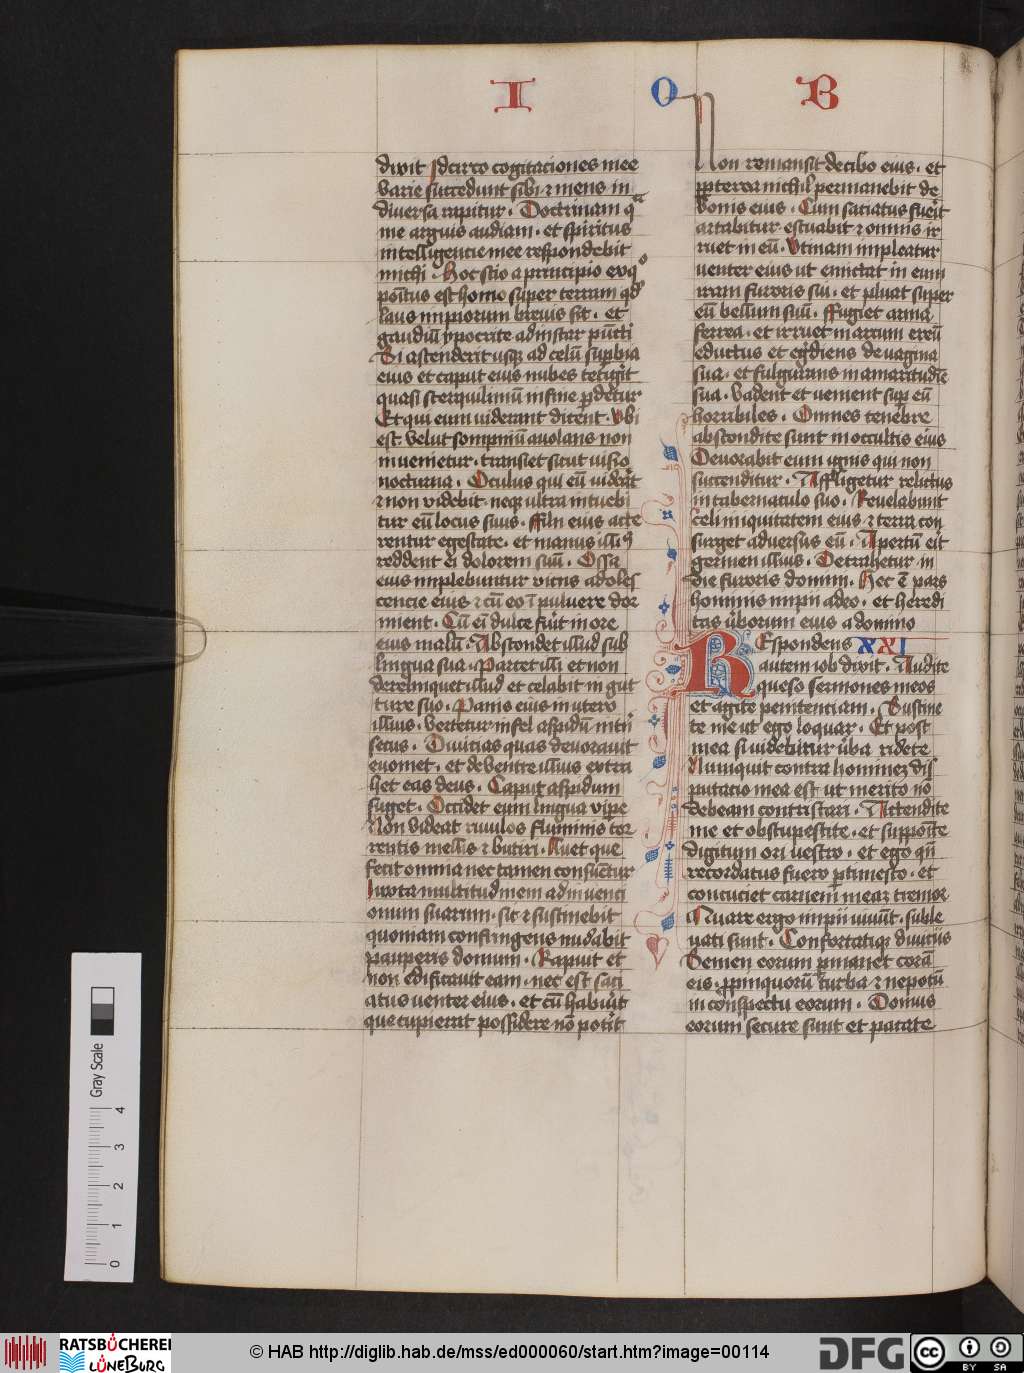 I O B
dixit Idcirco cogitaciones mee
varie succedunt sibi ⁊ mens in
diuersa rapitur . Doctrinam qͣ
me arguis audiam . et spiritus
intelligencie mee respondebit
michi . Hoc scio a principio ex qͦ
poītus est homo super terram qd̕
laus impiorum breuis sit . et
gaudiū ypocrite ad instar pūcti
Si ascenderit usqꝫ ad celū suꝑbia
eius et caput eius nubes tetigīt
quasi sterquiliniū in fine ꝑdetur
Et qui eum uiderant dicent . Vbi
est velut sompniū auolans non
inuenietur . transiet sicut uisio
nocturna . Oculus qui eū uiderāt
⁊ non videbit . neqꝫ ultra intuebi
tur eū locus suus . Filii eius atte
rentur egestate . et manus illiꝰ
reddent ei dolorem suū . Ossa
eius implebuntur viciis adoles
cencie eius ⁊ cū eo ī puluere dor
mient . Cū eī dulce fūit in ore
eius malū . Abscondet illud sub
lingua sua . Parcet illi et non
derelinquet illud et celabit in gut
ture suo . Panis eius in utero
illius . vertetur in fel aspidū intͥ
secus . Diuicias quas deuorauit
euomet . et de ventre illius extra
het eas deus . Caput aspidum
suget . Occidet eum lingua viꝑe
Non videat riuulos fluminis tor
rentis mellis ⁊ butiri . Luet que
fecit omnia nec tamen consūetur
Iuxta multitudinem adinuenci
onum suarum . sic ⁊ sustinebit
quoniam confringens nudabit
pauperis domum . Rapuit et
non edificauit eam . nec est saci
atus uenter eius . et cū habūit
que cupierat possidere nō potīt
Non remansit de cibo eius . et
ꝓpterea nichil permanebit de
bonis eius . Cum saciatus fuerit
artabitur . estuabit ⁊ omnis ir
ruet in eū . Vtinam impleatur
uenter eius ut emictat in eum
iram furoris sui . et pluat super
eū bellum suū . Fugiet arma
ferrea . et irruet in arcum ereū
eductus et eg͛diens de vagina
sua . et fulgurans in amaritudīe
sua . vadent et uenient suꝑ eū
horribiles . Omnes tenebre
abscondite sunt in occultis eius
Deuorabit eum ignis qui non
succenditur . Affligetur relictus
in tabernaculo suo . Reuelabunt
celi iniquitatem eius ⁊ terra con
surget aduersus eū . Apertū eīt
germen illius . Detrahetur in
die furoris domini . Hec ē pars
hominis impii a deo . et heredi
tas v͛borum eius a domino
REspondens XXI
autem iob dixit . Audite
queso sermones meos
et agite penitenciam . Sustine
te me ut ego loquar . Et post
mea si videbitur v͛ba ridete
Nunquit contra hominez dis
putacio mea est ut merito nō
debeam contristari . Attendite
me et obstupescite . et supponīte
digitum ori uestro . et ego qn̄
recordatus fuero ꝑtimesco . et
concuciet carnem meaz tremor
Quare ergo impii viuūt . suble
uati sunt . Confortatiqꝫ diuiciis
Semen eorum ꝑmanet corā
eis . ꝓpinquorū turba ⁊ nepotū
in conspectu eorum . Domus
eorum secure sunt et pacate
Gray Scale
0 1 2 3 4
RATSBÜCHEREI
LÜNEBURG
© HAB http://diglib.hab.de/mss/ed000060/start.htm?image=00114
DFG
cc BY SA